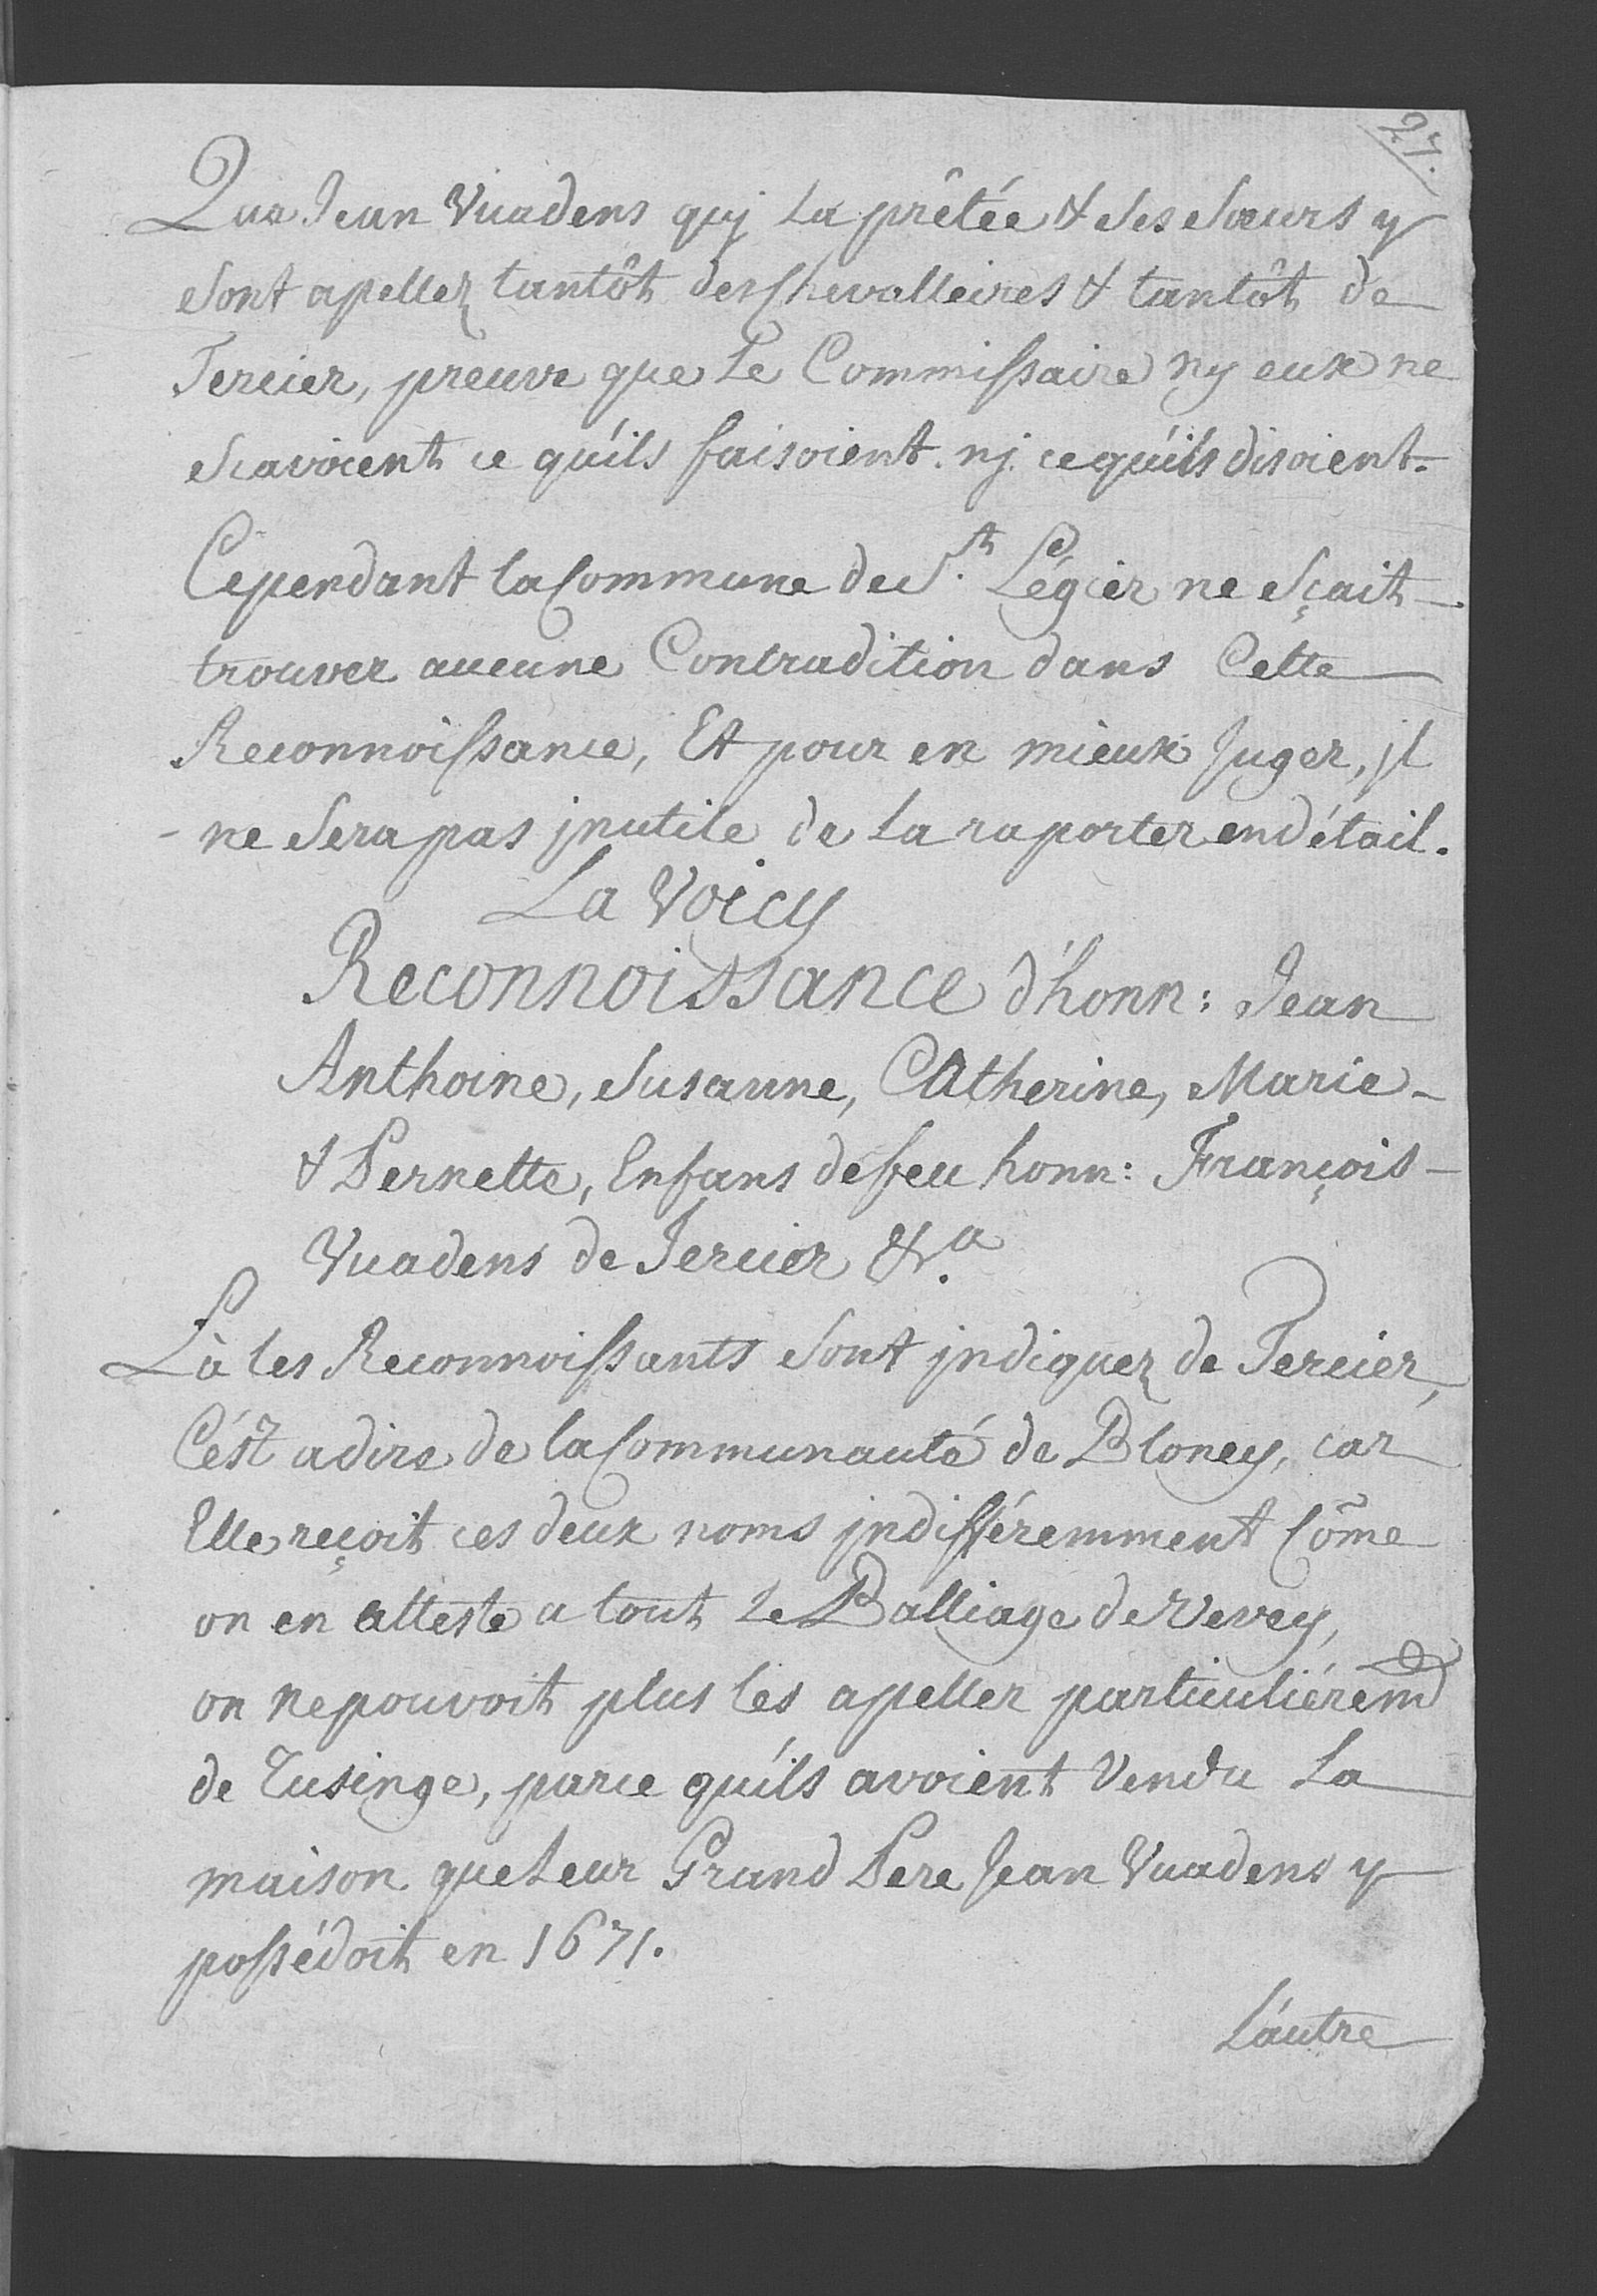 27.
Que Jean Vuadens quj La prêtée & Ses Sœurs y
Sont apellez tantôt des Chevalleires & tantôt de
Tercier, preuve que Le Commissaire ny eux ne
Scavoient ce qu'ils faisoient. nj. ce qu'ils disoient.
Cependant la Commune de S.t Légier ne Sçait
trouver aucune Contradition dans Cette
Reconnoissance, Et pour en mieux Juger, jl
ne Sera pas jnutile de La raporter en détail.
La Voicy
Reconnoissance d'honn: Jean
Anthoine, Susanne, Catherine, Marie
& Pernette, Enfans de feu honn: François
Vuadens de Tercier &.a
Là les Reconnoissants Sont jndiquez de Tercier,
C'ést a dire de la Communauté de Bloney, car
Elle reçoit ces deux noms jndifféremment Cõme
on en atteste a tout Le Balliage de Vevey,
on ne pouvoit plus les apeller particuliérem̃
de Tusinge, parce qu'ils avoient Vendu La
maison que Leur Grand Pere Jean Vuadens y
possédoit en 1671.
L'autre